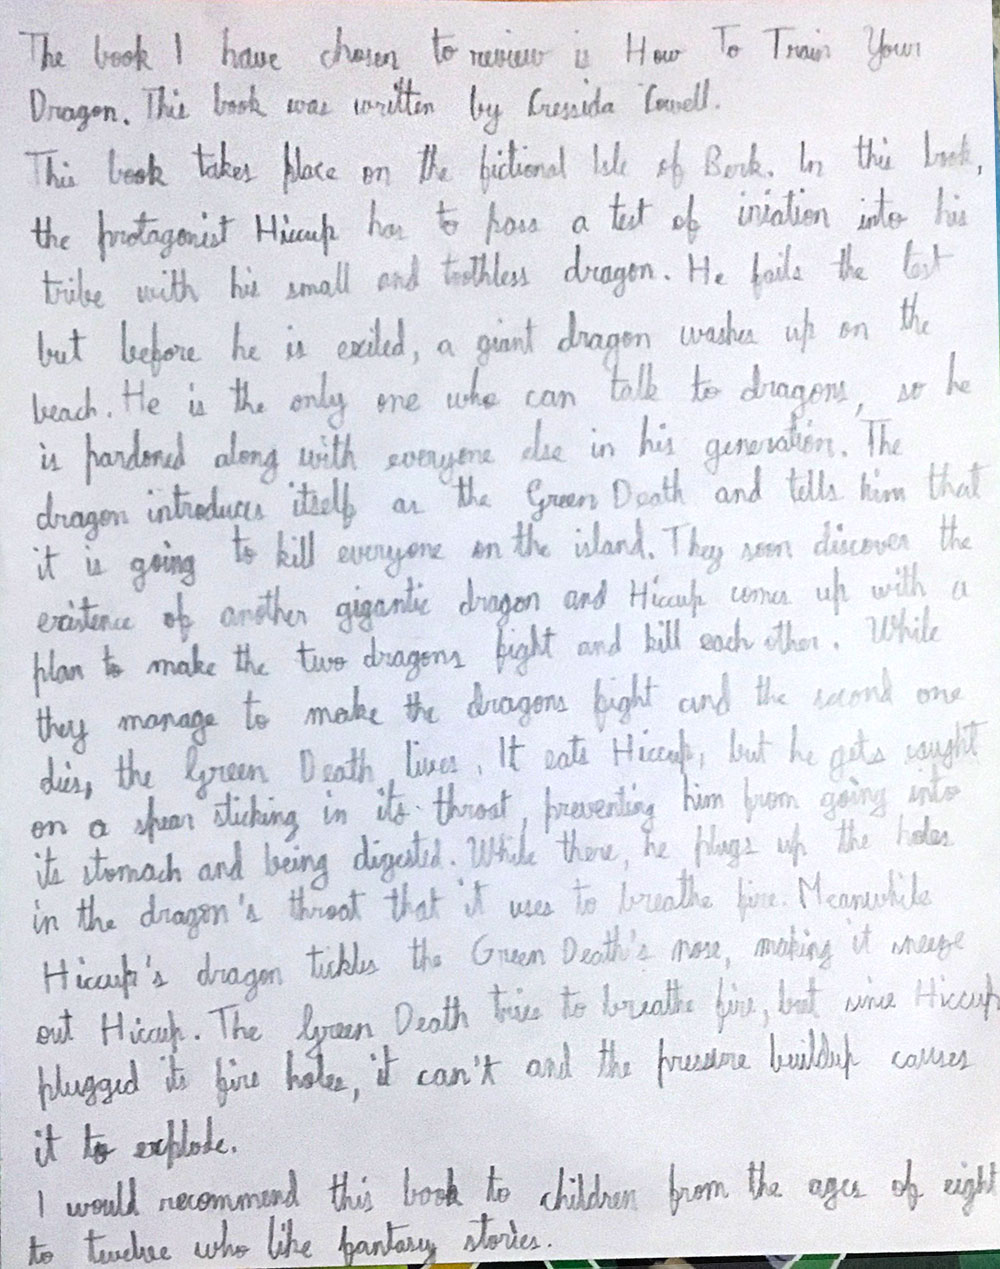 The book I have chosen to review is How To Train Your
Dragon. This book was written by Cressida Cowell.
This book takes place on the fictional Isle of Berk. In this book,
the protagonist Hiccup has to pass a test of iniation into his
tribe with his small and toothless dragon. He fails the test
but before he is exiled, a giant dragon washes up on the
beach. He is the only one who can talk to dragons, so he
is pardoned along with everyone else in his generation. The
dragon introduces itself as the Green Death and tells him that
it is going to kill everyone on the island. They soon discover the
existence of another gigantic dragon and Hiccup comes up with a
plan to make the two dragons fight and kill each other. While
they manage to make the dragons fight and the second one
dies, the Green Death lives. It eats Hiccup, but he gets caught
on a spear sticking in its throat, preventing him from going into
its stomach and being digested. While there, he plugs up the holes
in the dragon's throat that it uses to breathe fire. Meanwhile
Hiccup's dragon tickles the Green Death's nose, making it sneeze
out Hiccup. The Green Death tries to breathe fire, but since Hiccup
plugged its fire holes, it can't and the pressure buildup causes
it to explode.
I would recommend this book to children from the ages of eight
to twelve who like fantasy stories.